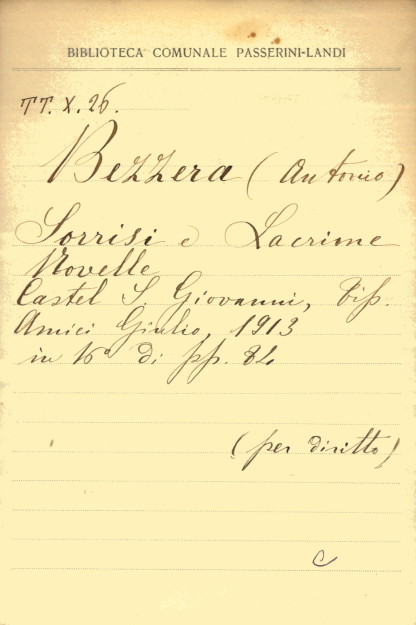 BIBLIOTECA COMUNALE PASSERINI-LANDI
TT. X. 26.
Bezzera (Antonio)
Sorrisi e Lacrime
Novelle
Castel S. Giovanni, Tip.
Amici Giulio, 1913
in 16° di pp. 84
(per diritto)
C